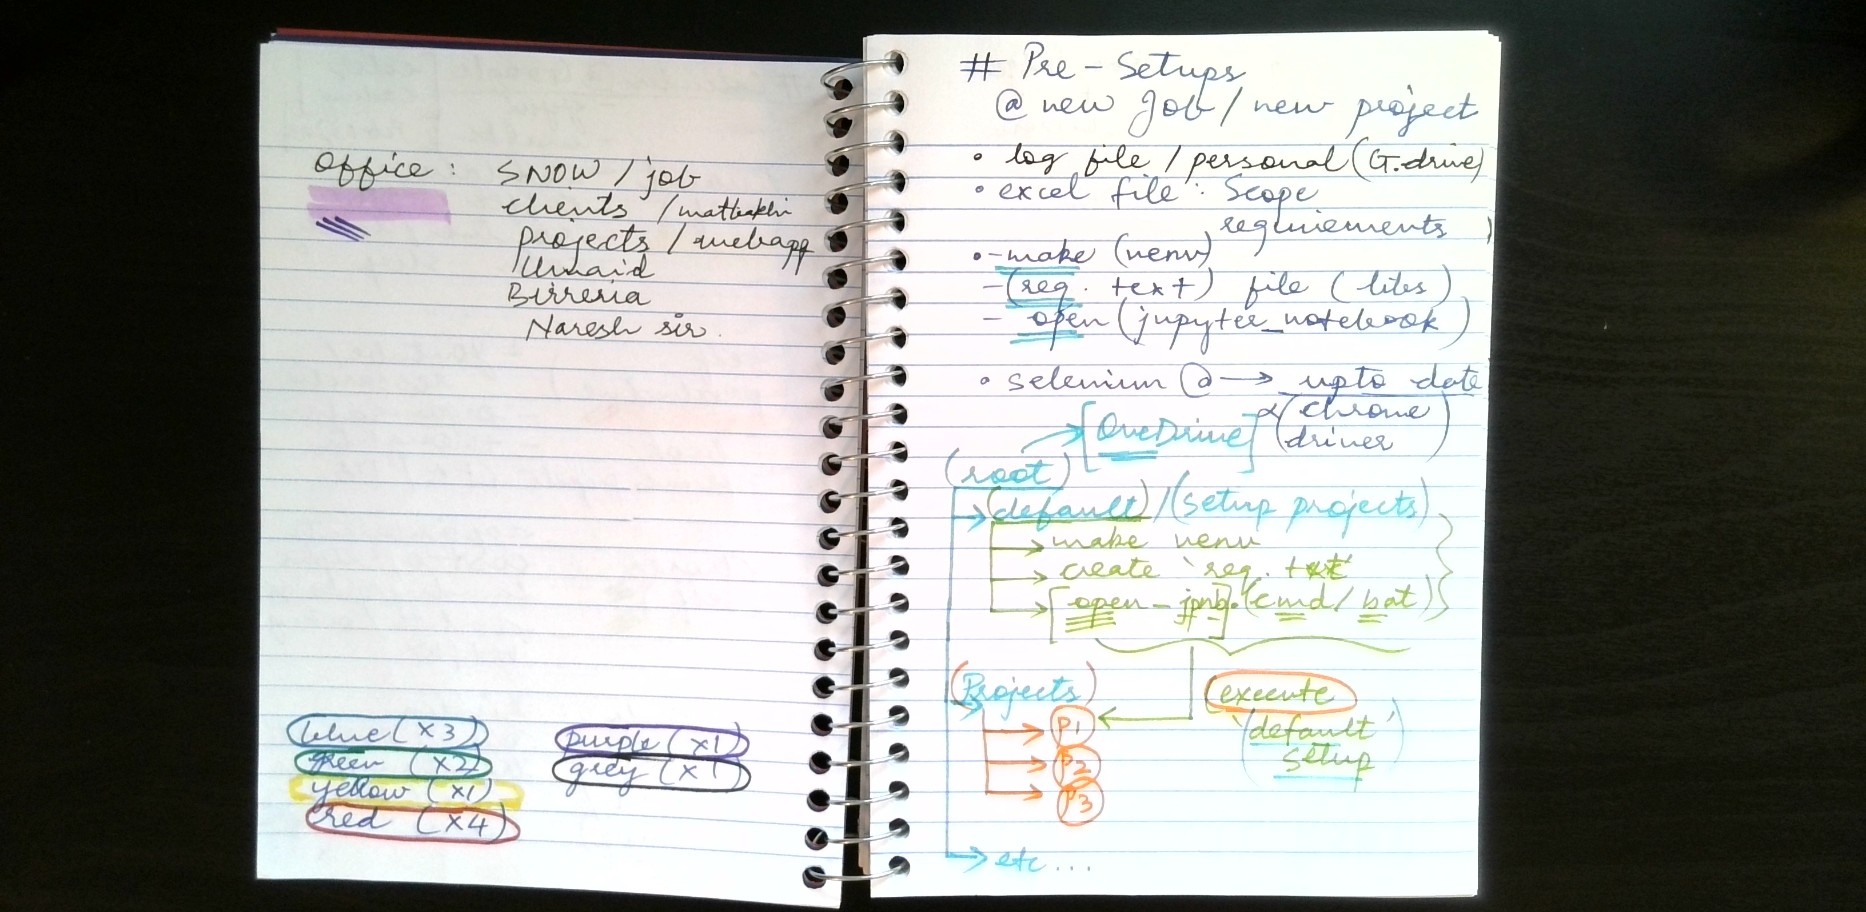 office : SNOW / job
clients /
projects / webapp
Umaid
Birreria
Naresh sir.
blue (x3)
green (x2)
yellow (x1)
red (x4)
purple (x1)
grey (x1)
# Pre - Setups
@ new Job / new project
• log file / personal (G.drive)
• excel file : Scope
requiements )
• - make (venv)
- (req. text) file (libs)
- open (jupyter_notebook)
• selenium @ → upto date
(chrome
driver)
[OneDrive]
(root)
(default) / (setup projects)
make venv
create 'req. txt'
[open - jpnb]. (cmd / bat)
(Projects)
P1
P2
P3
execute
'default'
setup
etc ...